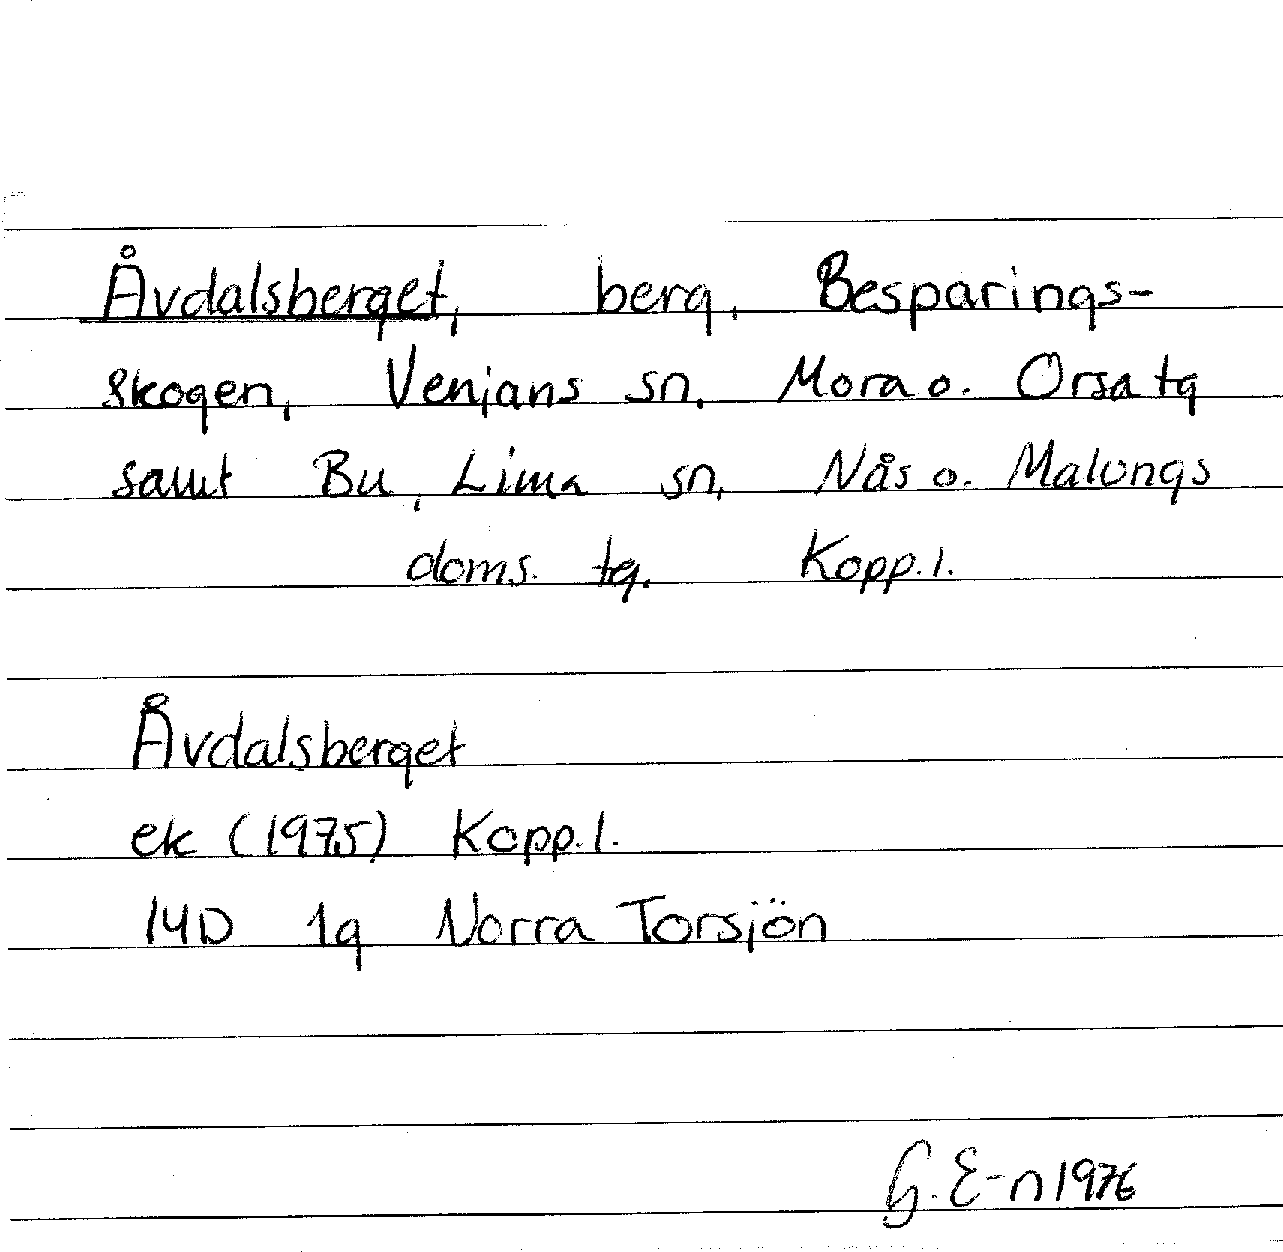 Åvdalsberget, berg, Besparings-
skogen, Venjans sn, Mora o. Orsa tg
samt Bu, Lima sn, Nås o. Malungs
doms. tg. Kopp.l.
Åvdalsberget
ek (1975) Kopp.l.
14D 1g Norra Torsjön
G. E-n 1976